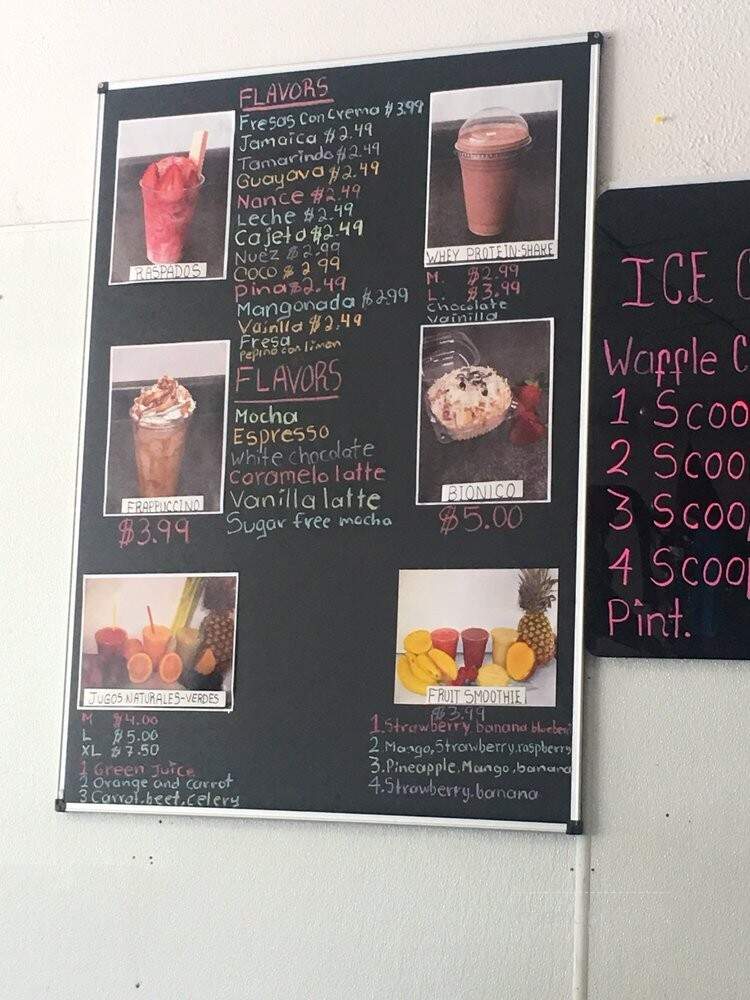 FLAVORS
Fresas Con Crema $3.99
Jamaica $2.49
Tamarindo $2.49
Guayava $2.49
Nance $2.49
Leche $2.49
Cajeta $2.49
Nuez $2.99
Coco $2.99
Pina $2.49
Mangonada $2.99
Vainilla $2.49
Fresa
Pepino con limon
RASPADOS
WHEY PROTEIN-SHAKE
M. $2.99
L. $3.99
Chocolate
Vainilla
FLAVORS
Mocha
Espresso
White chocolate
Caramelo latte
Vanilla latte
Sugar free mocha
FRAPPUCCINO
$3.99
BIONICO
$5.00
JUGOS NATURALES-VERDES
M $4.00
L $5.00
XL $7.50
1 Green Juice
2 Orange and carrot
3 Carrot, beet, celery
FRUIT SMOOTHIE
$3.99
1. Strawberry, banana blueberr
2 Mango, Strawberry, raspberry
3. Pineapple, Mango, banana
4. Strawberry, banana
ICE C
Waffle C
1 Scoo
2 Scoo
3 Scoop
4 Scoop
Pint.